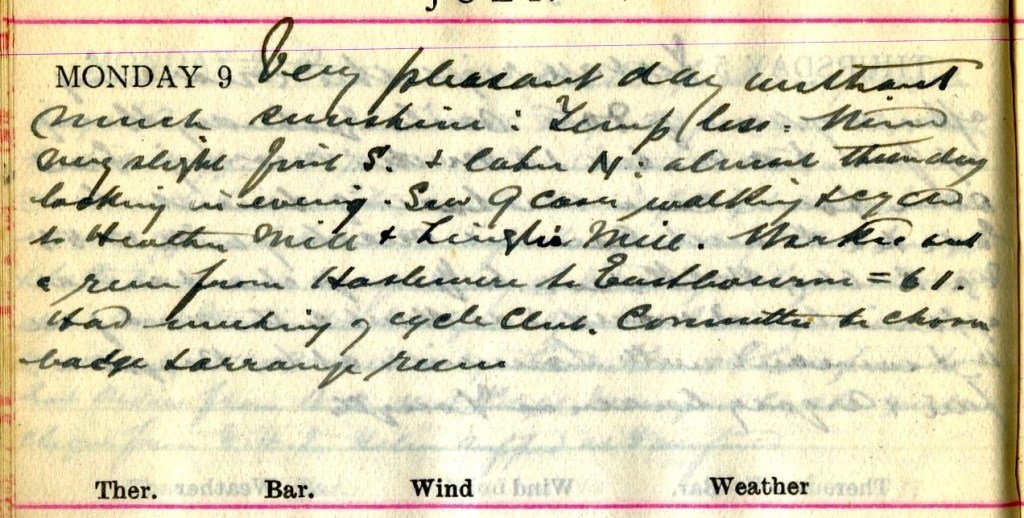 MONDAY 9 Very pleasant day without
much sunshine: Temp less. Wind
very slight first S. & later N: almost thundery
looking in evening. Saw 9 cases walking & cycled
to Heather Mill & Mill. Worked out
a run from Haslemere to Eastbourne = 61.
Had meeting of cycle Club. Committee to choose
badge & arrange runs
Ther. Bar. Wind Weather